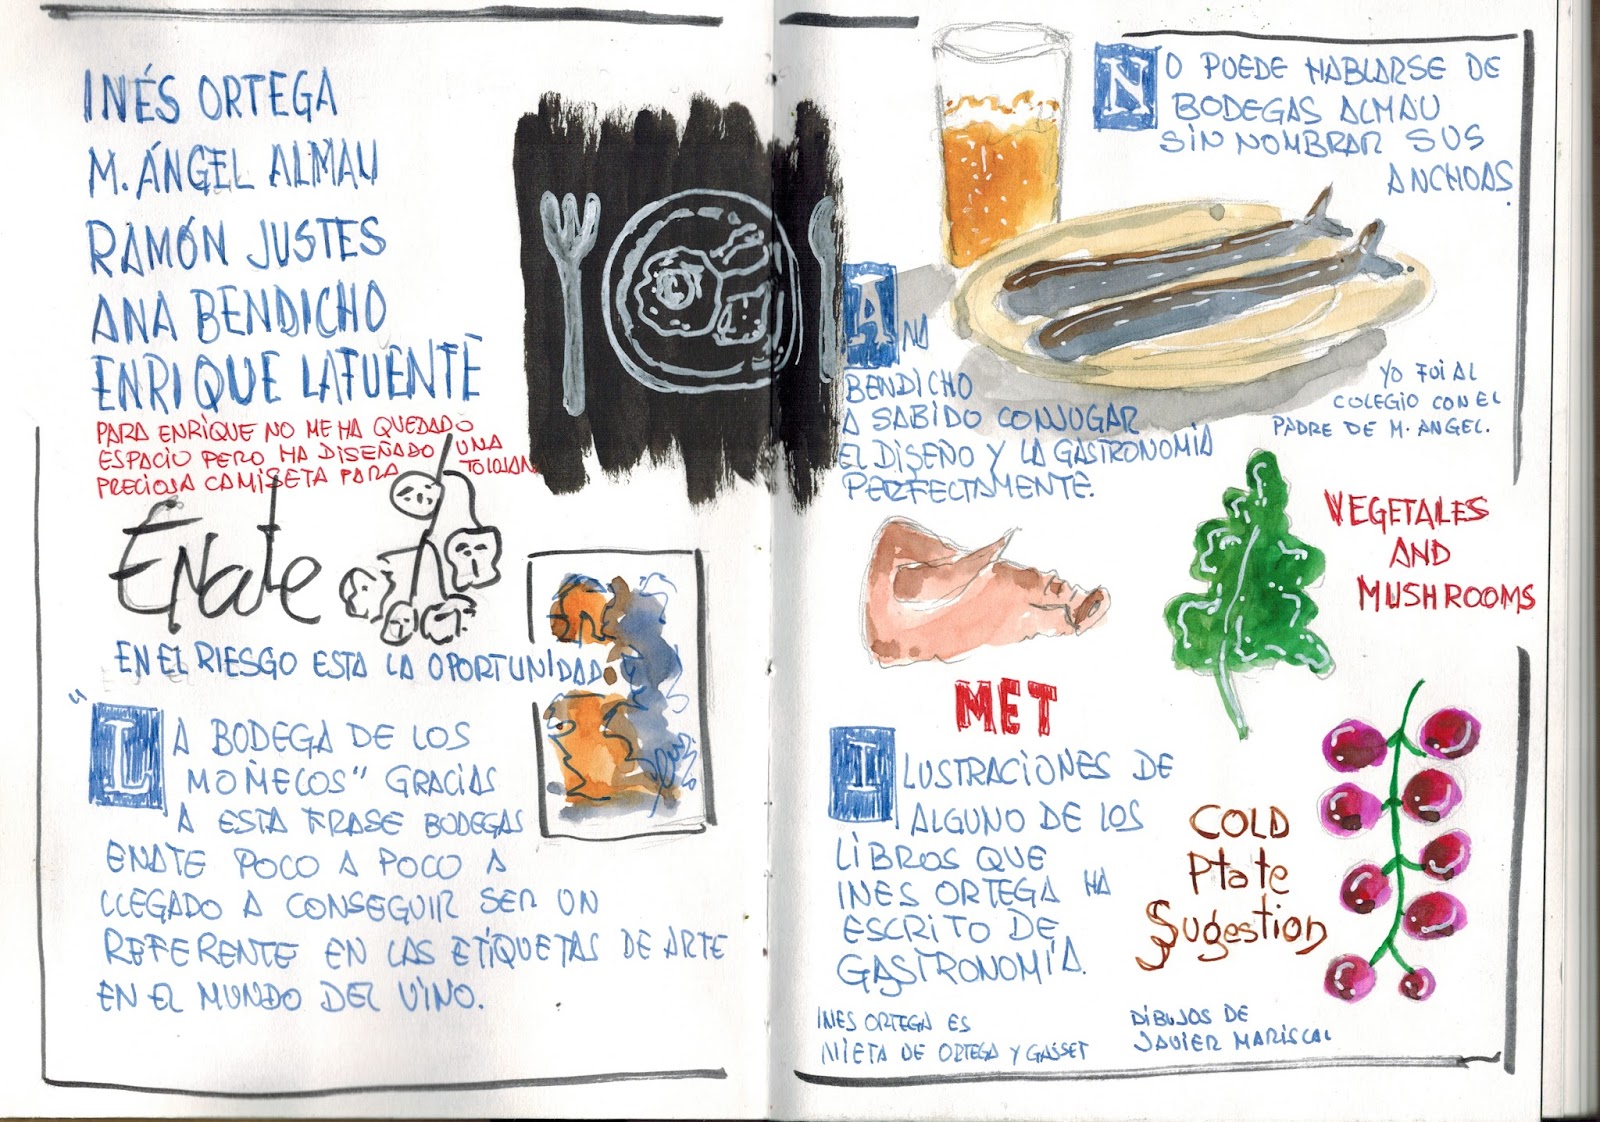 INÉS ORTEGA
M. ÁNGEL ALMAU
RAMÓN JUSTES
ANA BENDICHO
ENRIQUE LAFUENTE
PARA ENRIQUE NO ME HA QUEDADO
ESPACIO PERO HA DISEÑADO UNA
PRECIOSA CAMISETA PARA TOLOJAN
ENate
EN EL RIESGO ESTA LA OPORTUNIDAD
"LA BODEGA DE LOS
MOÑECOS" GRACIAS
A ESTA FRASE BODEGAS
ENATE POCO A POCO A
LLEGADO A CONSEGUIR SER UN
REFERENTE EN LAS ETIQUETAS DE ARTE
EN EL MUNDO DEL VINO.
NO PUEDE HABLARSE DE
BODEGAS ALMAU
SIN NOMBRAR SUS
ANCHOAS.
ANA
BENDICHO
A SABIDO CONJUGAR
EL DISEÑO Y LA GASTRONOMIA
PERFECTAMENTE.
YO FUI AL
COLEGIO CON EL
PADRE DE M. ANGEL.
VEGETALES
AND
MUSHROOMS
MET
ILUSTRACIONES DE
ALGUNO DE LOS
LIBROS QUE
INES ORTEGA HA
ESCRITO DE
GASTRONOMÍA.
COLD
Plate
Sugestion
INES ORTEGA ES
NIETA DE ORTEGA Y GASSET
DIBUJOS DE
JAVIER MARISCAL